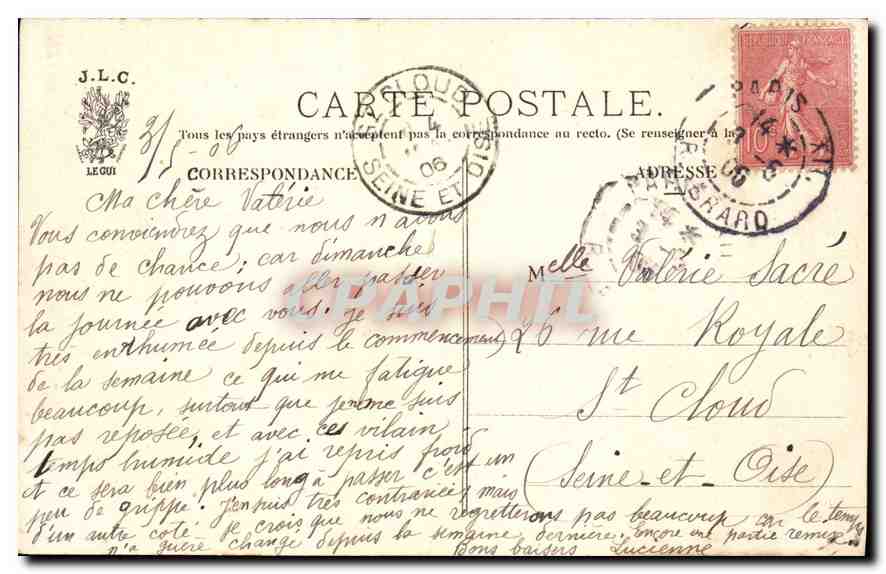 J.L.C.
LE GUI
CARTE POSTALE.
Tous les pays étrangers n'acceptent pas la correspondance au recto. (Se renseigner à la
CORRESPONDANCE
ADRESSE
3/5-06
Ma chère Valérie
Vous conviendrez que nous n'avons
pas de chance; car dimanche
nous ne pouvons aller passer
la journée avec vous. Je suis
très enrhumée depuis le commencement
de la semaine ce qui me fatigue
beaucoup, surtout que je ne me suis
pas reposée, et avec ces vilain
temps humide j'ai repris froid
et ce sera bien plus long à passer c'est un
peu de grippe. J'en suis très contrariée, mais
d'un autre coté je crois que nous ne regretterons pas beaucoup car le temps
n'a guère change depuis la semaine dernière. Encore une partie remise
Bons baisers Lucienne
Melle Valérie Sacré
26 rue Royale
St Cloud
(Seine-et-Oise)
REPUBLIQUE FRANÇAISE
10
PARIS XII
14
06
ST CLOUD
4
06
SEINE ET OISE
CPAPHIL